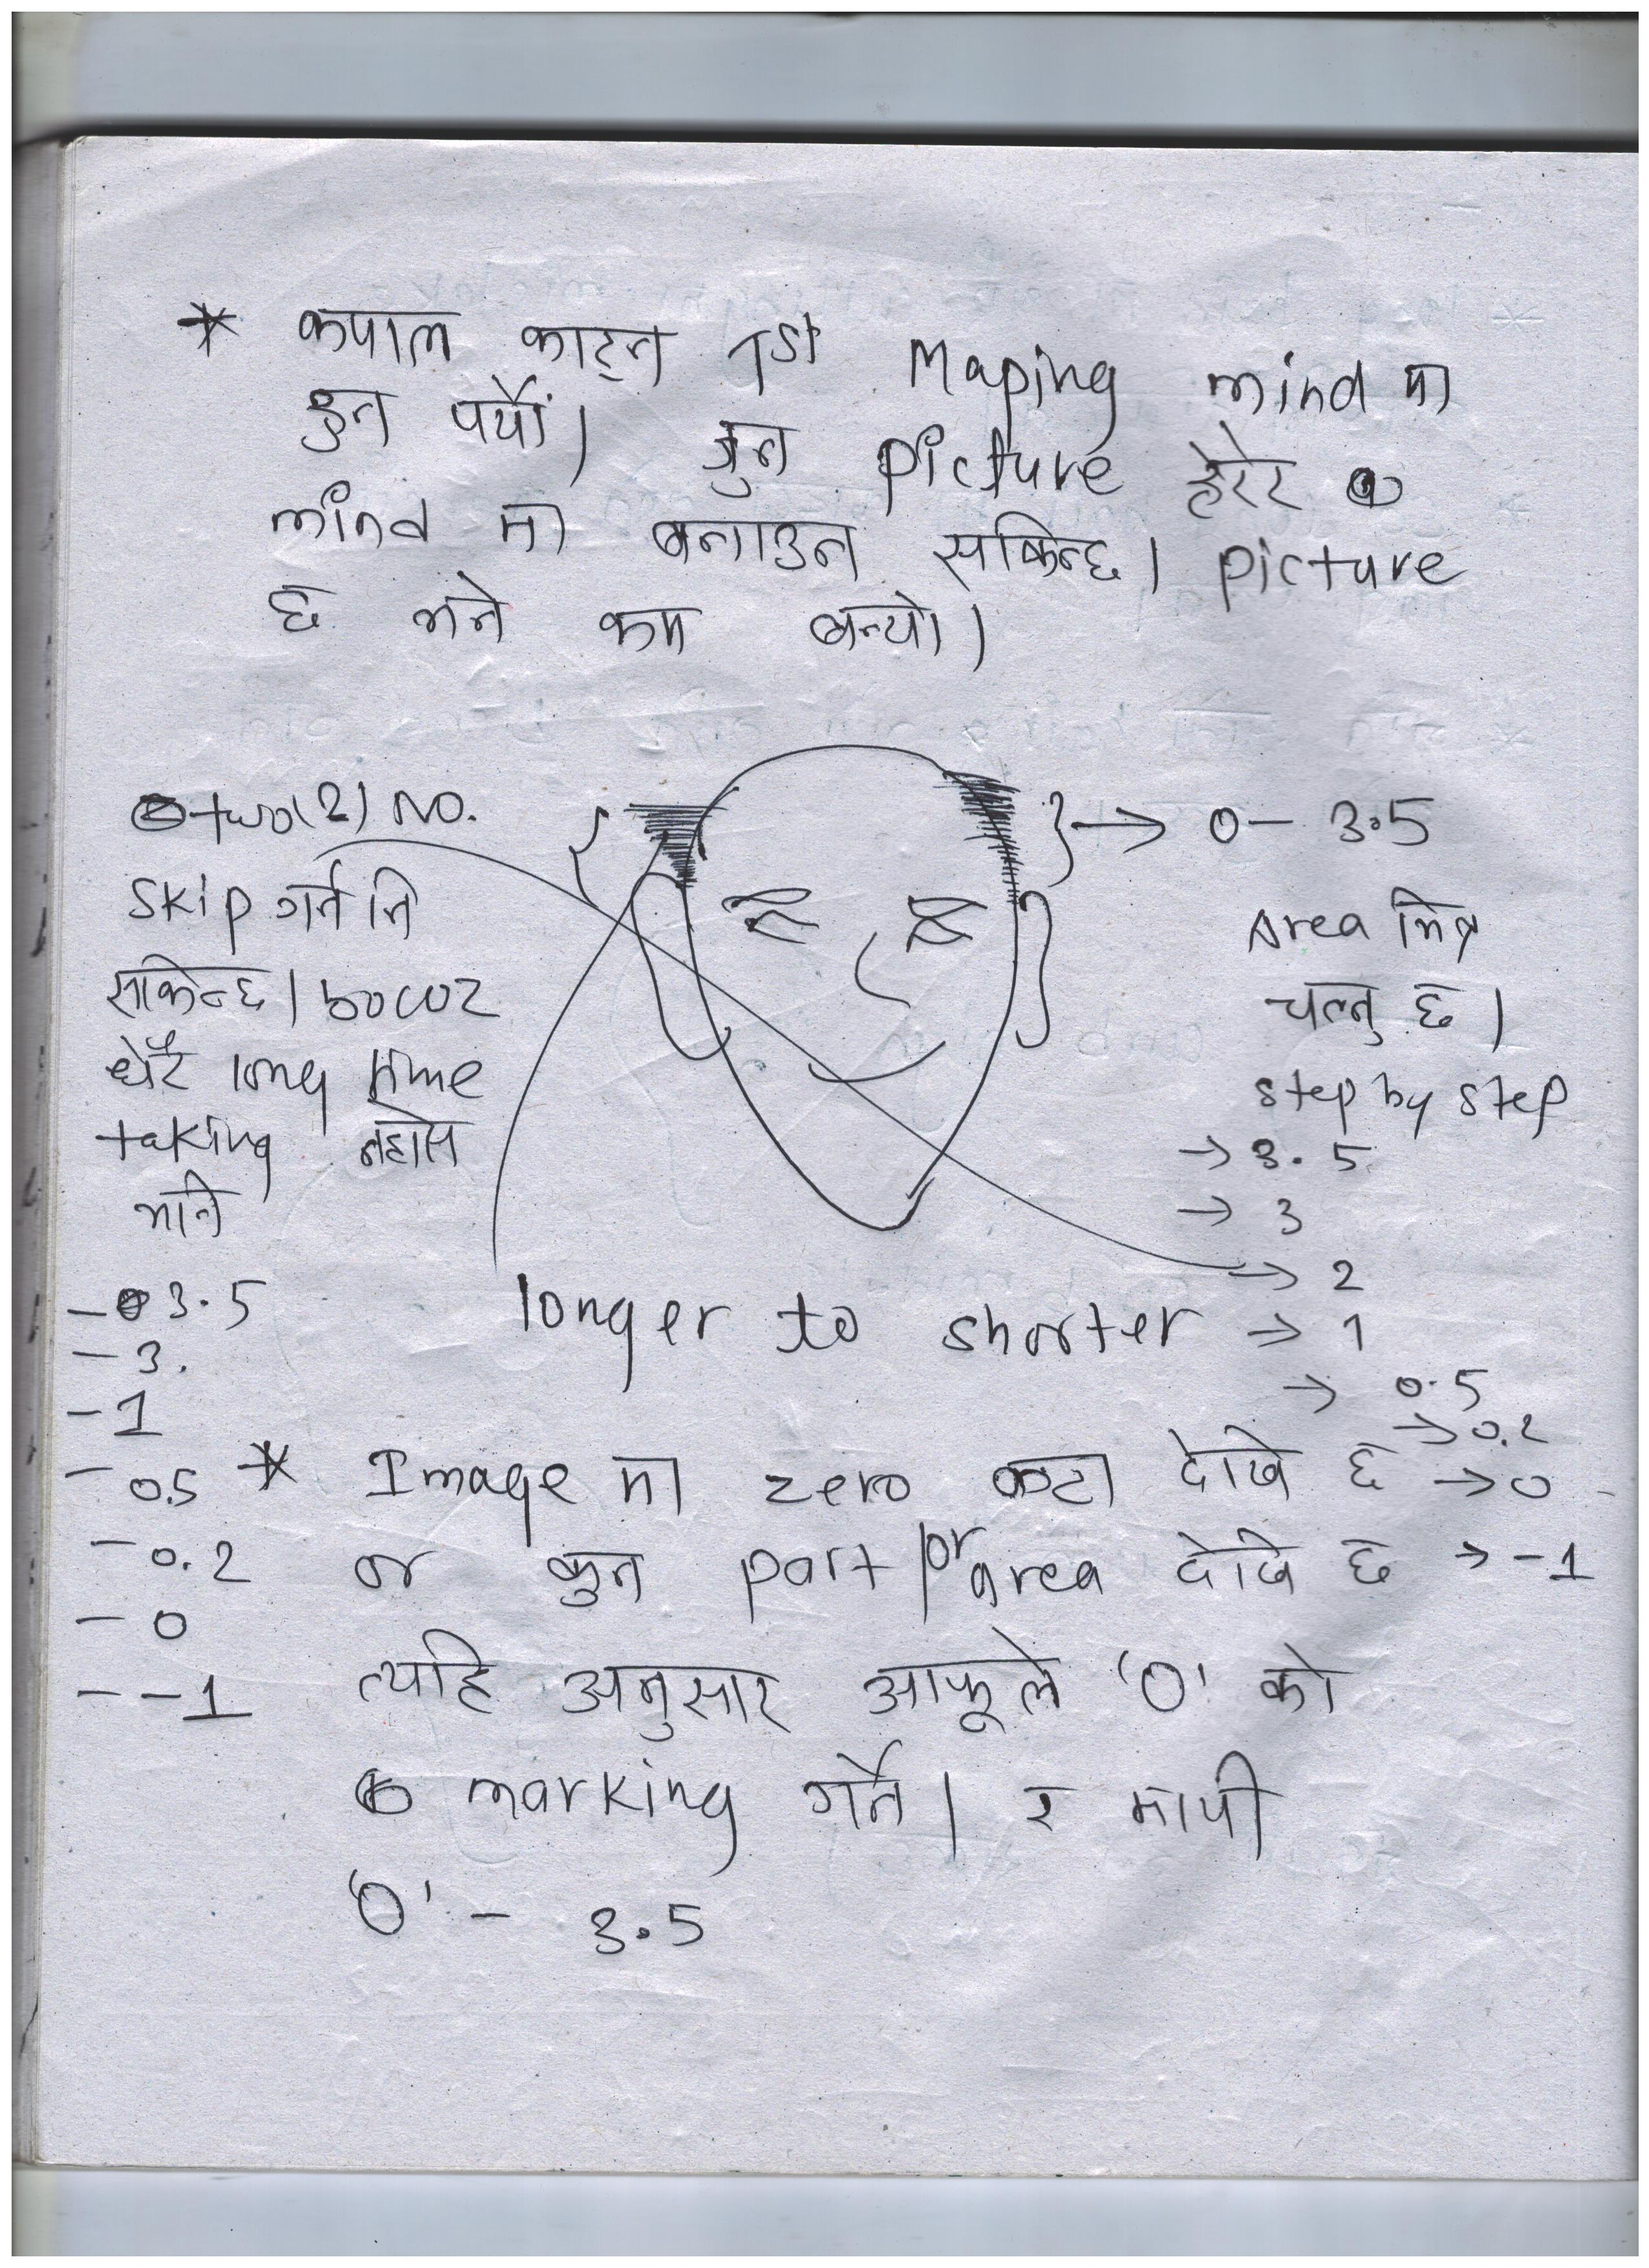 * कपाल काट्न 1st Maping mind मा
हुन पर्यो। जुन picture हेरेर
mind मा बनाउन सकिन्छ। picture
छ भने कम बन्यो।
two(2) NO.
skip गर्न नि
सकिन्छ। becoz
धेरै long time
taking नहोस
भनि
- 3.5
- 3.
- 1
- 0.5
- 0.2
- 0
- -1
} → 0 - 3.5
Area भित्र
चल्नु छ।
step by step
→ 3.5
→ 3
→ 2
→ 1
→ 0.5
→ 0.2
→ 0
→ -1
longer to shorter
* Image मा zero कटा देखि छ
or कुन part/or area देखि छ
त्यहि अनुसार आफूले '0' को
marking गर्ने। र मापी
'0' - 3.5